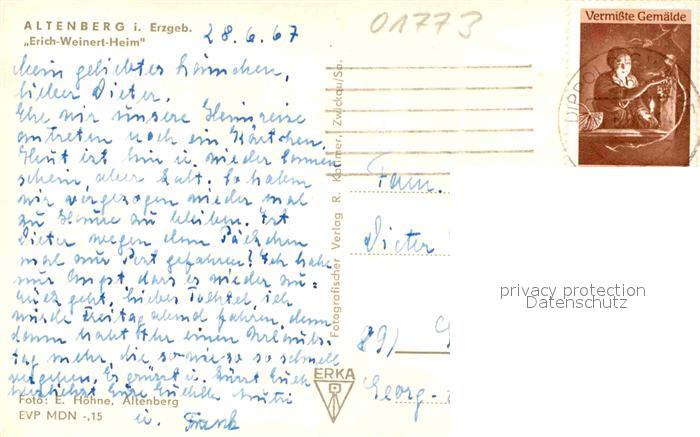 ALTENBERG i. Erzgeb.
„Erich-Weinert-Heim"
28.6.67
01773
Vermißte Gemälde
Mein geliebtes
lieber Dieter.
Ehe wir unsere Heimreise
antreten noch ein Kärtchen.
Heut ist hin u. wieder Sonnen
schein, aber kalt. So haben
wir vorgezogen wieder mal
zu Hause zu bleiben. Ist
Dieter wegen dem Päckchen
mal zur Post gefahren? Ich habe
nur Angst dass es wieder zu-
rück geht, lieber
würde Freitag abend fahren, denn
dann habt Ihr einen Urlaubs-
tag mehr, die so wie so so schnell
vergehen. Es grüsst u. küsst Euch
herzlichst Eure Mutti
u. Frank
Foto: E. Höhne, Altenberg
EVP MDN -,15
Fotografischer Verlag R. Kallmer, Zwickau/Sa.
ERKA
Fam.
Dieter
89)
Georg-
privacy protection
Datenschutz